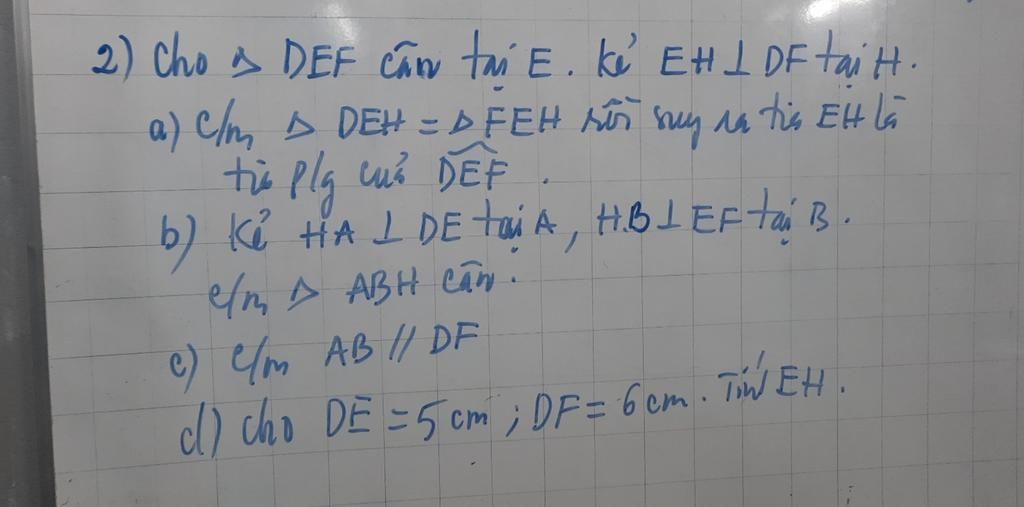 2) Cho Δ DEF cân tại E. Kẻ EH ⊥ DF tại H.
a) C/m Δ DEH = Δ FEH rồi suy ra tia EH là
tia p/g của DEF̂.
b) Kẻ HA ⊥ DE tại A, HB ⊥ EF tại B.
c/m Δ ABH cân.
c) c/m AB // DF
d) Cho DE = 5 cm ; DF = 6 cm. Tính EH.